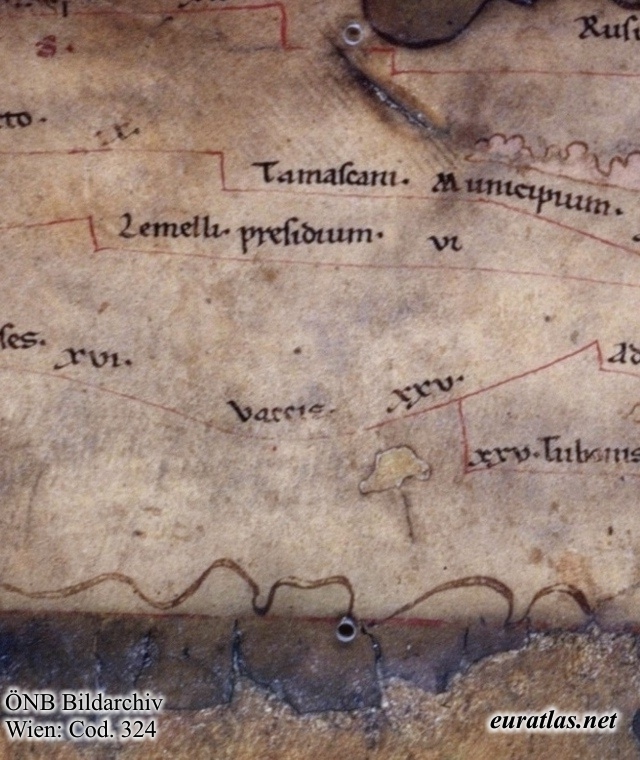 Rusi
cto.
Tamascani. Municipium.
Lemelli. presidium. VI
ses. XVI.
Vaccis. XXV. Ad
XXV. Tubonis
ÖNB Bildarchiv
Wien: Cod. 324
euratlas.net